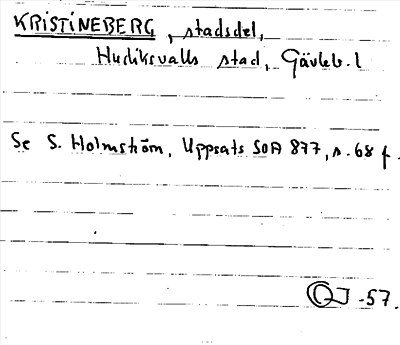 KRISTINEBERG, stadsdel,
Hudiksvalls stad, Gävleb. l
Se S. Holmström, Uppsats SOA 877, s. 68 f.
OJ -57.